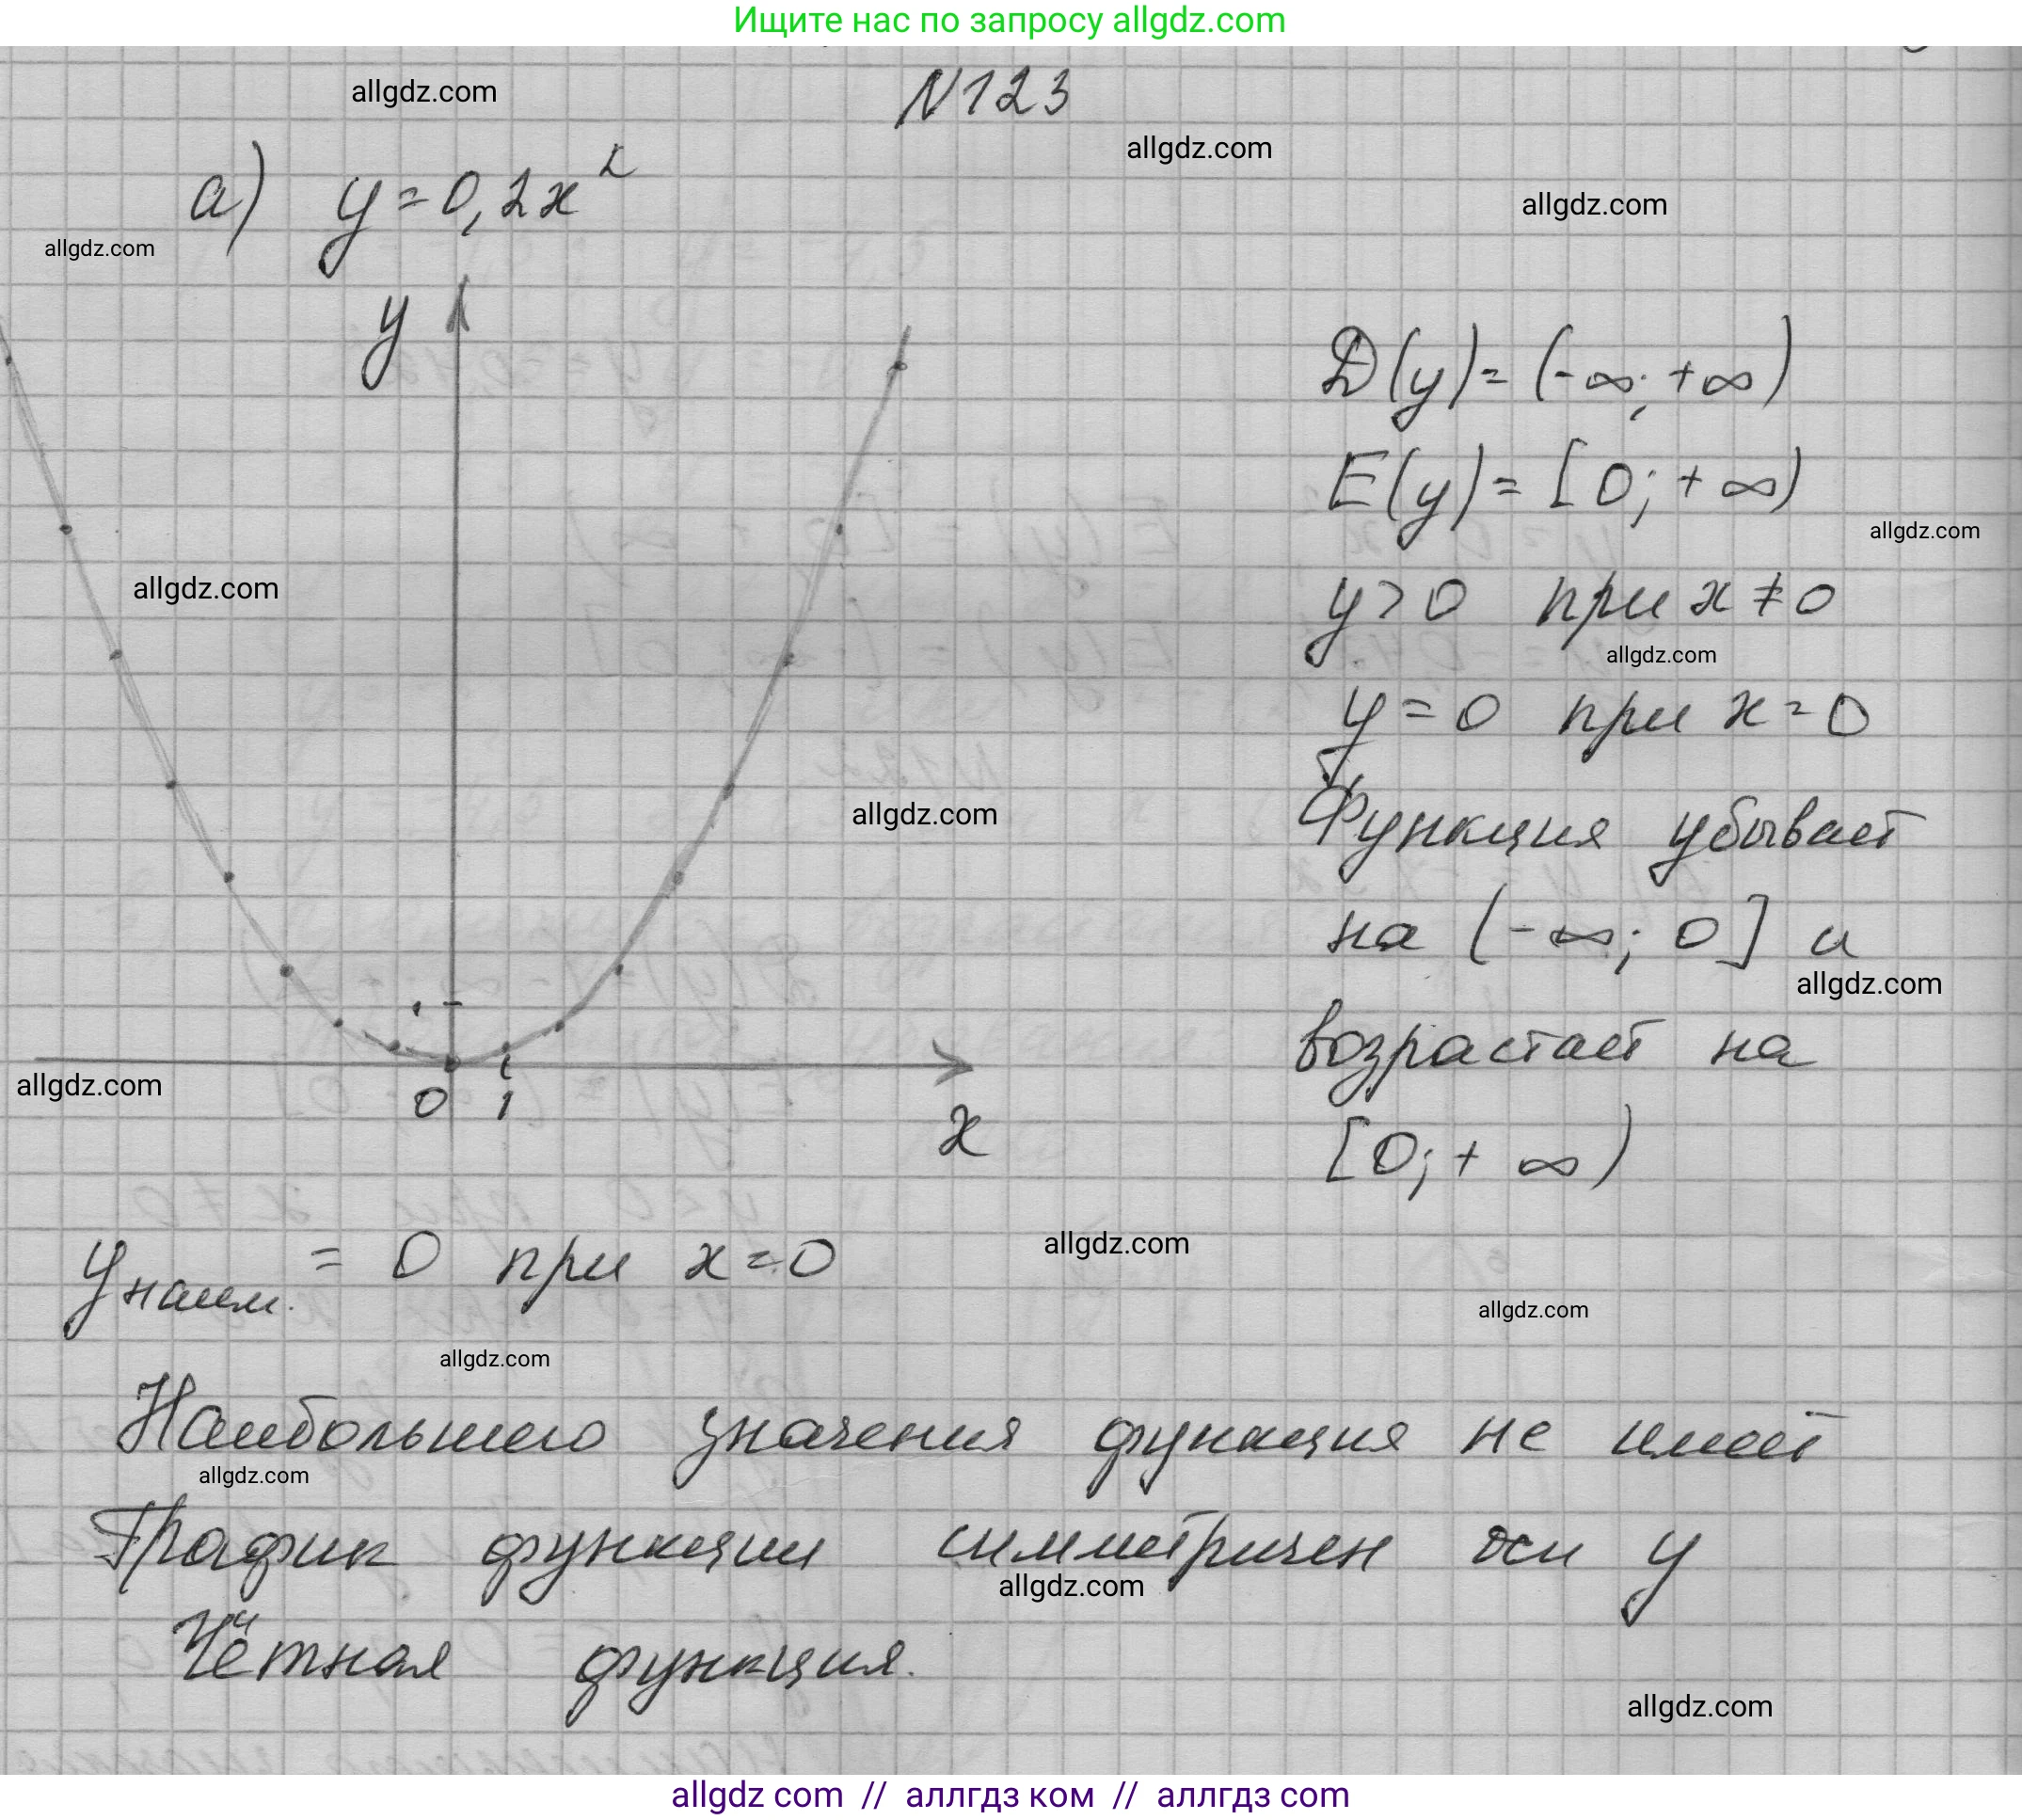 Ищите нас по запросу allgdz.com
N123
allgdz.com
allgdz.com
а) y=0,2x²
allgdz.com
allgdz.com
y
D(y)=(-∞;+∞)
E(y)=[0;+∞)
allgdz.com
allgdz.com
y>0 при x≠0
allgdz.com
y=0 при x=0
allgdz.com
Функция убывает
на (-∞;0] и
allgdz.com
1
возрастает на
allgdz.com
0 1
x
[0;+∞)
yнаим. = 0 при x=0
allgdz.com
allgdz.com
allgdz.com
Наибольшего значения функция не имеет
allgdz.com
График функции симметричен оси y
allgdz.com
Чётная функция.
allgdz.com
allgdz com // аллгдз ком // аллгдз com